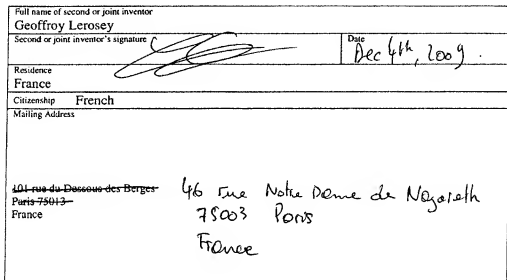 Full name of second or joint inventor
Geoffroy Lerosey
Second or joint inventor's signature
Date
Dec 4th, 2009.
Residence
France
Citizenship French
Mailing Address
101 rue du Dessous des Berges
Paris 75013
France
46 rue Notre Dame de Nazareth
75003 Paris
France